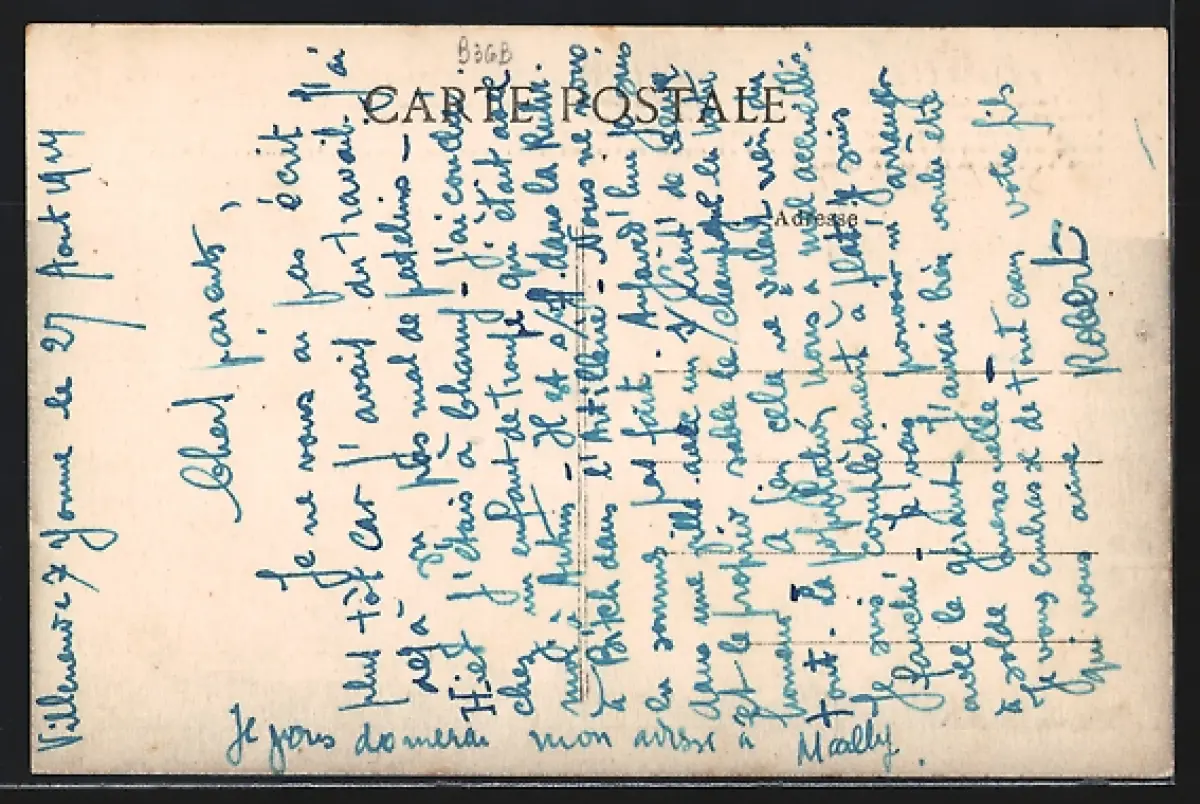 B3GB
CARTE POSTALE
Adresse
Villeneuve Yonne le 27 Aout 19
Chers parents,
Je ne vous ai pas écrit
plus tôt car j'avais du travail. J'ai
déjà vu pas mal de patelins —
Hier j'étais à Charny - J'ai couché
chez un enfant de troupe qui était avec
moi à Autun - Il est s/ dans la
à Bitch dans l'Artillerie - Nous ne nous
la sommes pas fait. Aujourd'hui je suis
dans une villa avec un s/Lieut de
Et le proprio sable le champagne
a bien cela ne valait rien du
tout. La population nous a mal accueillis.
Je suis complètement à plat, je suis
fauché - Je vais pouvoir m'arranger
avec le gérant. J'aurai bien voulu être
à solde mensuelle -
Je vous embrasse de tout cœur votre fils
qui vous aime Robert.
Je vous donnerai mon adresse à Mailly.